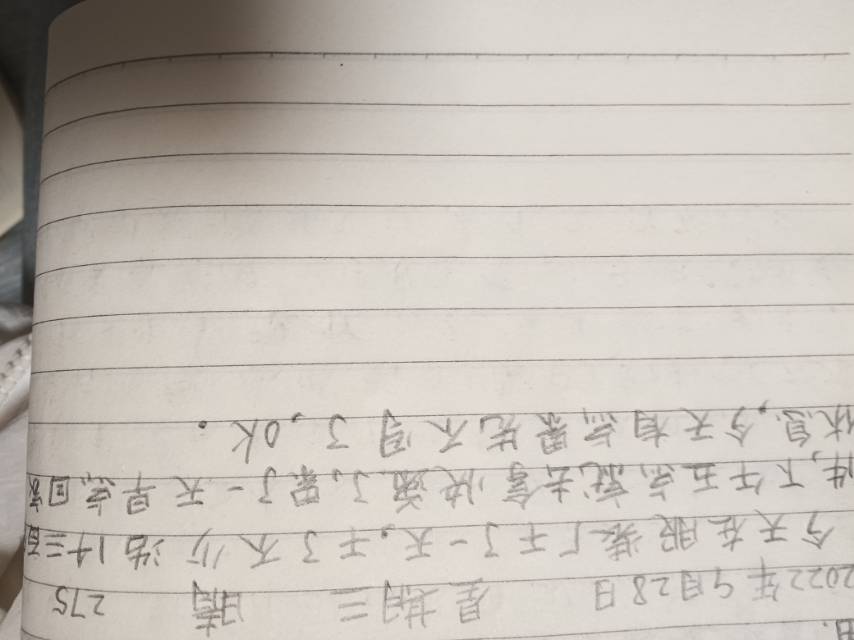 2022年9月28日 星期三 晴 275
今天在服装厂干了一天,干了不少活1千三百
件,下午五点就去拿快递了,累了一天早点回家
休息,今天有点累先不写了,OK.